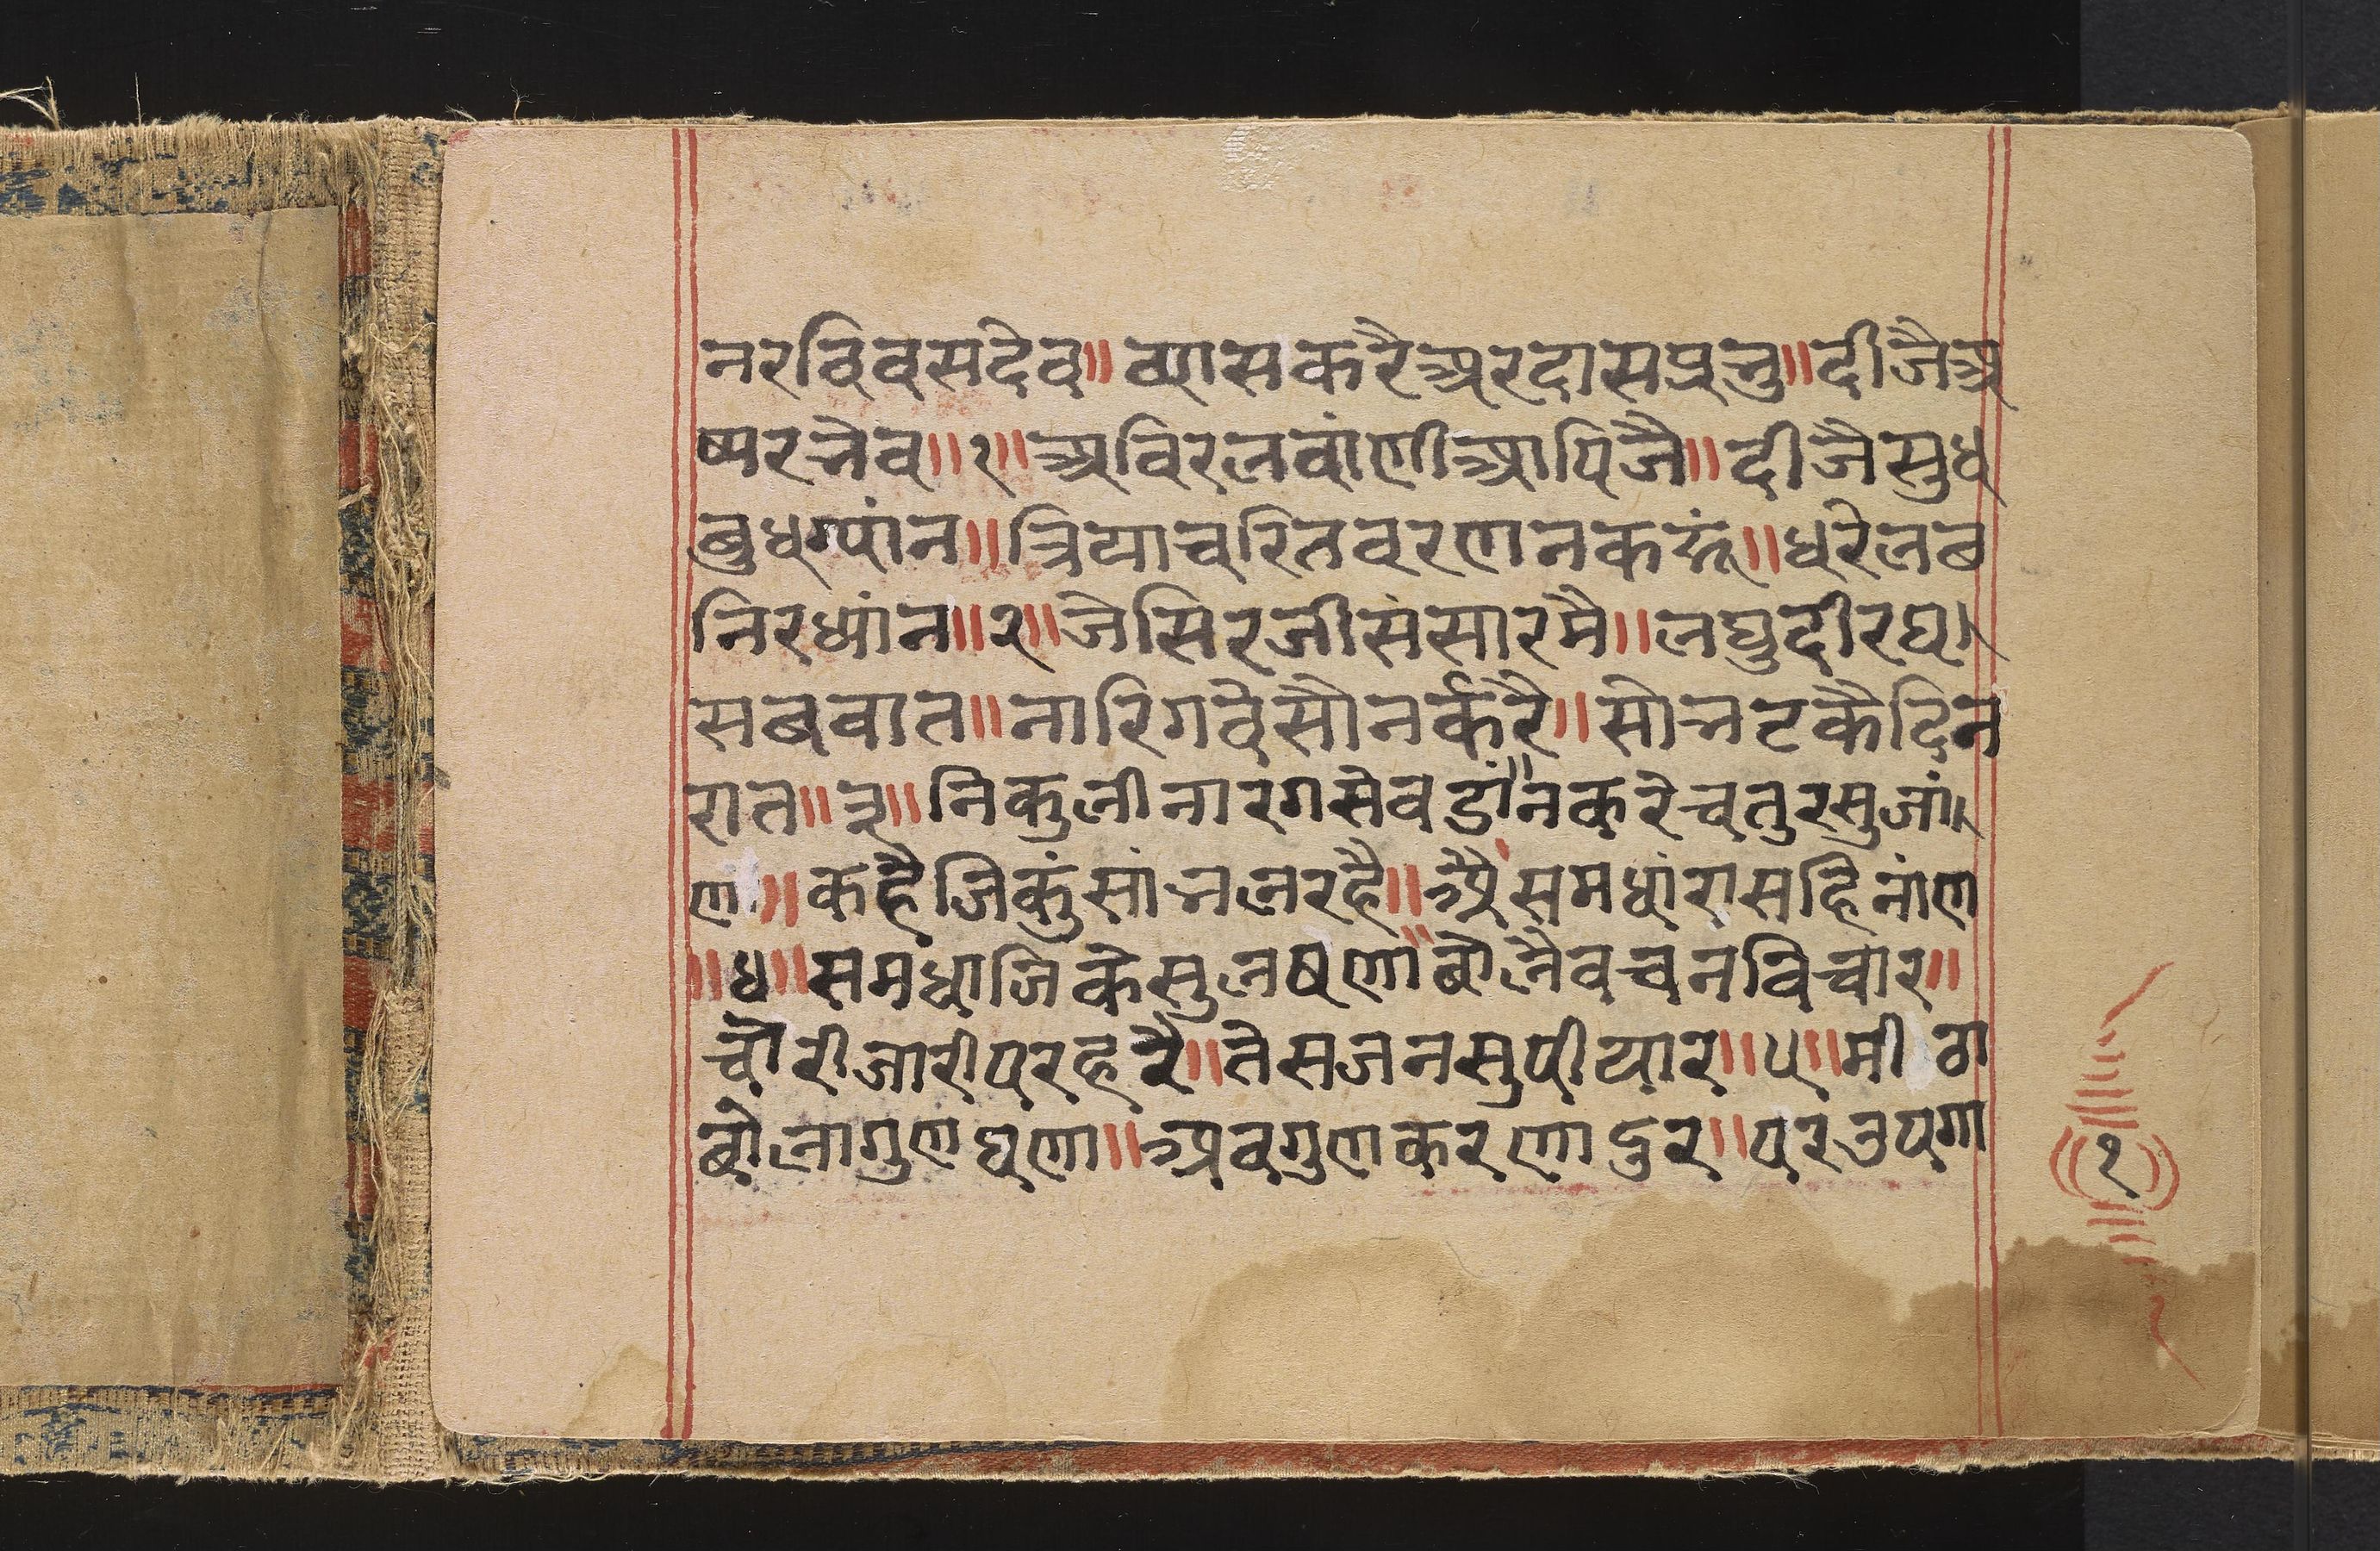 नरबिबसदेव॥ व्यासकरैअरदासप्रभु॥दीजैअ
ष्यरभेव॥१॥अविरलवांणीआपिजै॥दीजैसुध
बुधग्यांन॥त्रियाचरितवरणनकरूं॥धरेलब
निरध्यांन॥२॥जेसिरजीसंसारमै॥लघुदीरघ।
सबवात॥नारिगढेसौनर्करै॥सोभटकैदिन
रात॥३॥निकुलीनारंगसेवडां॥नकरेचतुरसुजां।
ण॥कहैजिकुंसांभलरहै॥अैसमधांरासहिनांण
॥४॥समधाजिकेसुलषणा॥बोलैवचनविचार॥
चोरीजारीपरहरै॥तेसजनसुपीयार॥५॥मीठा
बोलागुणघणा॥अवगुणकरणादुर॥परउपगा
१